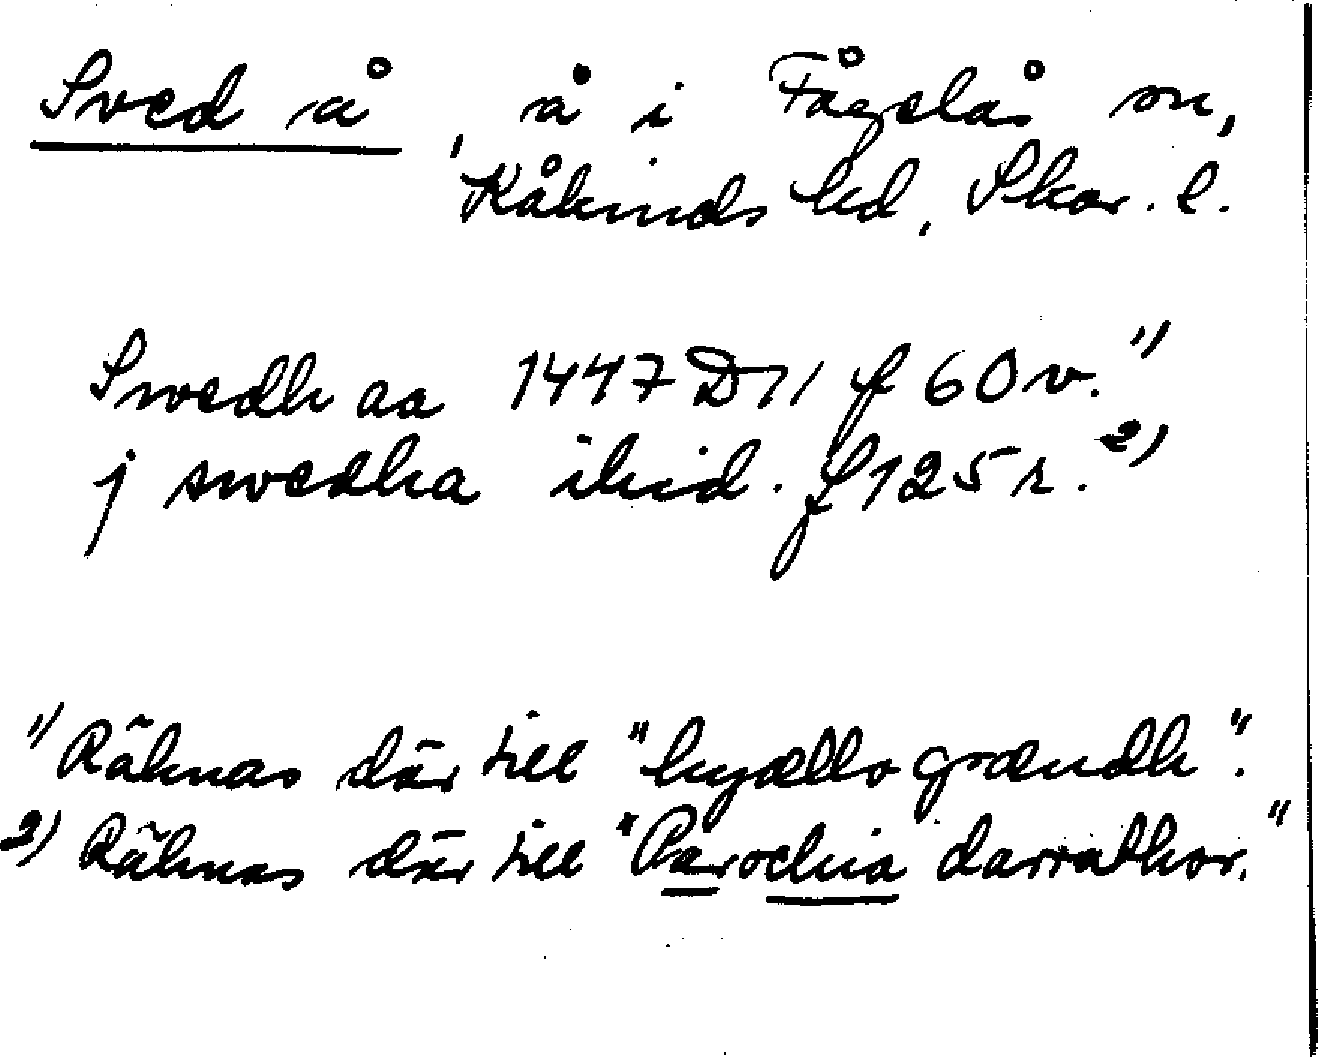 Sved å, å i Fågelås sn,
Kåkinds hd, Skar. l.
Swedh aa 1447 D 11 f 60 v.1)
j swedha ibid. f 125 r.2)
1) Räknas där till "hyællo grændh".
2) Räknas där till "Parochia darrathor."